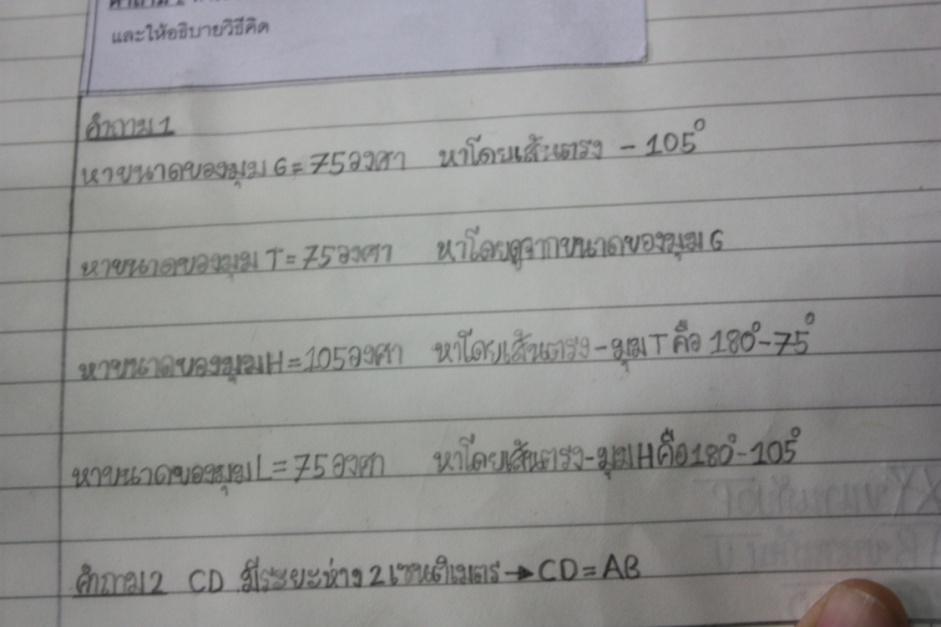 และให้อธิบายวิธีคิด
คำถาม 1
หาขนาดของมุม G = 75 องศา หาโดยเส้นตรง - 105°
หาขนาดของมุม T = 75 องศา หาโดยดูจากขนาดของมุม G
หาขนาดของมุม H = 105 องศา หาโดยเส้นตรง - มุม T คือ 180° - 75°
หาขนาดของมุม L = 75 องศา หาโดยเส้นตรง - มุม H คือ 180° - 105°
คำถาม 2 CD มีระยะห่าง 2 เซนติเมตร → CD = AB